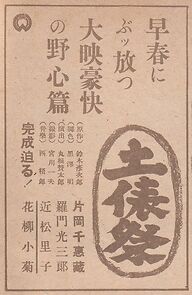 早春に
ぶッ放つ
大映豪快
の野心篇
土俵祭
(原作) 鈴木彦次郎
(脚色) 黒澤明
(演出) 丸根賛太郎
(撮影) 宮川一夫
(音楽) 西梧郎
完成迫る!
片岡千惠藏
羅門光三郎
近松里子
花柳小菊